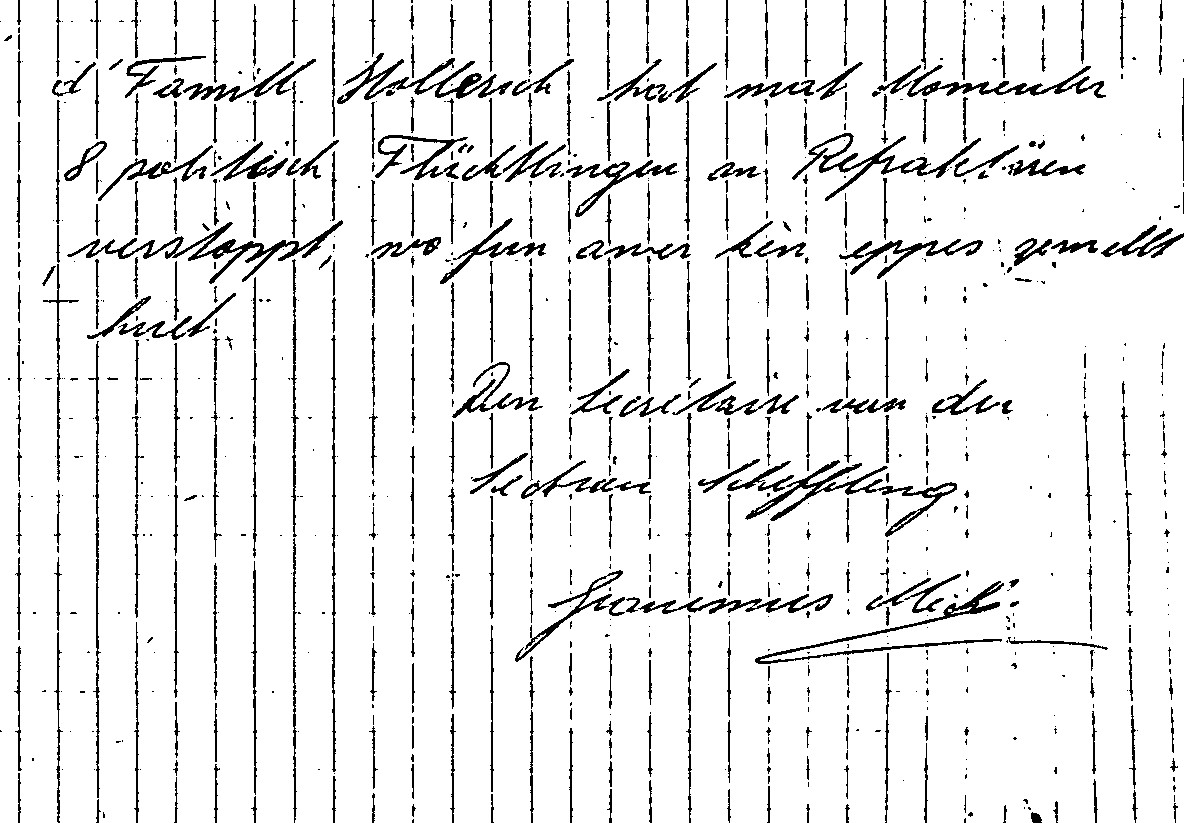 d' Famill Hollerich hat mat Momenter
8 politisch Flüchtlingen an Refraktären
verstoppt, wo fun awer kèn eppes gemellt
huet.
Den Secrétaire vun der
Sectioun Scheffleng.
Meck.